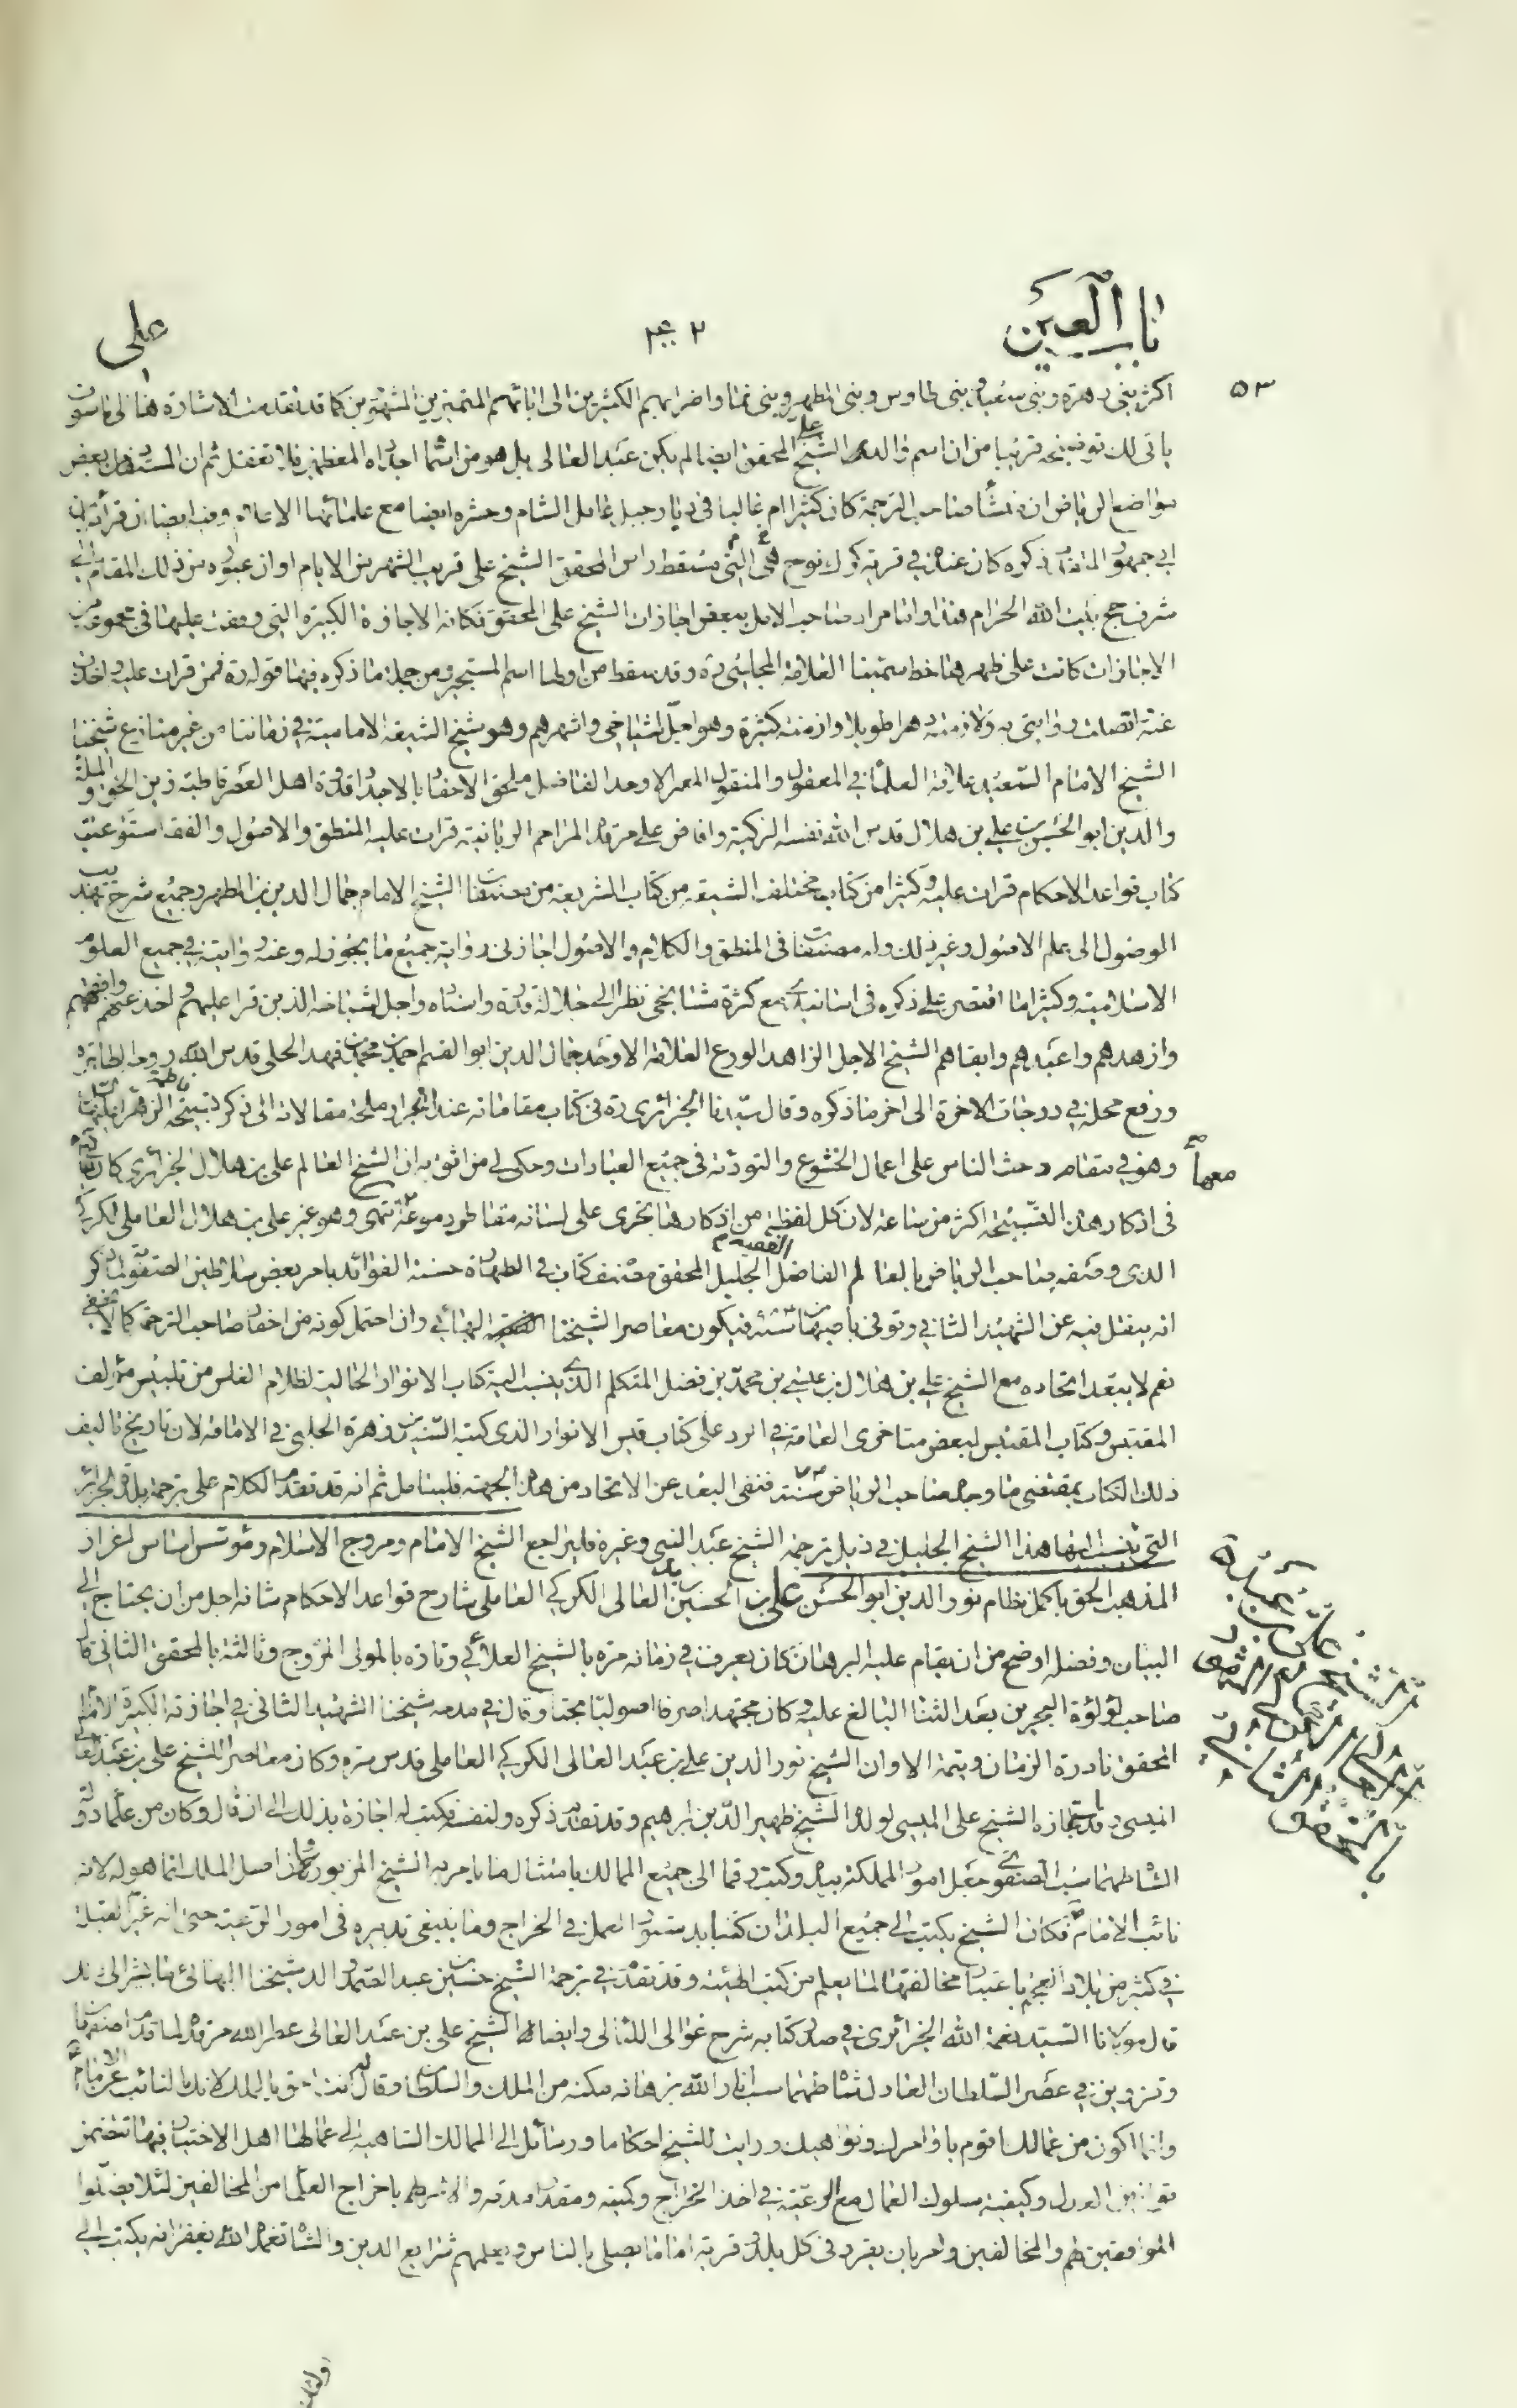 باب العين
٤٠٢
علي
٥٣
اكثر بني زهرة وبني سعيد وبني طاوس وبني المطهر وبني نما واضرابهم الكثيرين الى ابائهم المتميزين المشهورين كما قد تقدمت الاشارة هنا الى ما سوف
ياتى لك توضيحه قريبا من ان اسم والد الشيخ علي المحقق ايضا لم يكن عبد العالى بل هو من اسماء اجداده المعظمين فلا تغفل ثم ان المستفاد من بعض
مواضع الرياض ان منشأ صاحب الترجمة كان كثيرا ما غالبا فى ديار جبل عامل الشام وحشره ايضا مع علمائها الاعلام وفيه ايضا ان قرائة ابن
ابي جمهور المتقدم ذكره كان عنده في قرية كرك نوح التى هي مسقط راس المحقق الشيخ على قريب الشهر من الايام اوان عبوره من ذلك المقام الى
شرف حج بيت الله الحرام هذا واما مراد صاحب الامل ببعض اجازات الشيخ على المحقق فكانه الاجازة الكبيرة التي وقعت عليها فى مجموعة من
الاجازات كانت على ظهرها خط سمينا العلامة المجلسي ره وقد سقط من اولها اسم المستجيز ومن جملة ما ذكره فيها قوله ره فمن قرات عليه واخذت
عنه اتصلت روايتى به ولازمته دهرا طويلا وازمنة كثيرة وهو اجل اشياخى واشهرهم وهو شيخ الشيعة الامامية في زماننا من غير منازع شيخنا
الشيخ الامام السعيد علامة العلماء في المعقول والمنقول المعمر الاوحد الفاضل ملحق الاحفاد بالاجداد قدوة اهل العصر قاطبة زين الحق والملة
والدين ابو الحسن علي بن هلال قدس الله نفسه الزكية وافاض على مرقده المراحم الربانية قرات عليه المنطق والاصول والفقه استوعبت
كتاب قواعد الاحكام قرات عليه وكثيرا من كتاب مختلف الشيعة من كتاب الشريعة من مصنفات الشيخ الامام جمال الدين بن المطهر وجميع شرح تهذيب
الوصول الى علم الاصول وغير ذلك وله مصنفات فى المنطق والكلام والاصول اجاز لى رواية جميع ما يجوز له وعنه روايته في جميع العلوم
الاسلامية وكثيرا ما اقتصر على ذكره فى اسانيدي مع كثرة مشايخى نظرا الى جلالة قدره واسناده واجل اشياخه الذين قرا عليهم واخذ عنهم وافقههم
وازهدهم واعبدهم وابقاهم الشيخ الاجل الزاهد الورع العلامة الاوحد جمال الدين ابو القسم احمد بن محمد بن فهد الحلى قدس الله روحه الطاهره
ورفع محله في درجات الاخرة الى اخر ما ذكره وقال سيدنا الجزائرى ره فى كتاب مقاماته عند انجرار ملحة مقالاته الى ذكر تسبيحة فاطمة الزهراء
وهو في مقام وحث الناس على اعمال الخشوع والتؤدة فى جميع العبادات وحكى لى من اثق به ان الشيخ العالم على بن هلال الجزائرى كان
فى اذكار هذه التسبيحة اكثر من ساعة لان كل لفظة من اذكارها تجرى على لسانه تقاطر دموعه معها انتهى وهو غير على بن هلال العاملى الكركي
الذى وصفه صاحب الرياض بالعالم الفاضل الفقيه الجليل المحقق مصنف كتاب فى الطهارة حسنة الفوائد بامر بعض سلاطين الصفوية وذكر
انه ينقل فيه عن الشهيد الثاني وتوفى باصبهان سنة فيكون معاصرا لشيخنا البهائي وان احتمل كونه من احفاد صاحب الترجمة كما لا يخفى
نعم لا يبعد اتحاده مع الشيخ علي بن هلال بن عيسى بن محمد بن فضل المتكلم الذي ينسب اليه كتاب الانوار الجالية لظلام الغلس من تلبيس مؤلف
المقتبس وكتاب المقتبس لبعض متاخرى العامة في الرد على كتاب قبس الانوار الذى كتبه السيد بن زهرة الحلبى فى الامامة لان تاريخ تاليف
ذلك الكتاب بمقتضى ما وجده صاحب الرياض سنة فنفى البعد عن الاتحاد من هذه الجهة فليتامل ثم انه قد تقدم الكلام على ترجمة بلاد الجزائر
التى ينسب اليها هذا الشيخ الجليل في ذيل ترجمة الشيخ عبد النبى وغيره فليراجع الشيخ الامام ومروج الاسلام ومؤسس اساس اعزاز
المذهب الحق باكمل نظام نور الدين ابو الحسن علي بن الحسين بن عبد العالى الكركي العاملى شارح قواعد الاحكام شانه اجل من ان يحتاج الى
البيان وفضله اوضح من ان يقام عليه البرهان كان يعرف في زمانه مرة بالشيخ العلائي وتارة بالمولى المروج وثالثة بالمحقق الثانى قال
صاحب لؤلؤة البحرين بعد الثناء البالغ عليه وكان مجتهدا صرفا اصوليا بحتا وقال فى مدحه شيخنا الشهيد الثانى في اجازته الكبيرة الامام
المحقق نادرة الزمان ويتيمة الاوان الشيخ نور الدين علي بن عبد العالى الكركي العاملى قدس سره وكان معاصرا للشيخ على بن عبد العالي
الميسى وقد استجازه الشيخ على الميسى لولده الشيخ ظهير الدين ابرهيم وقد تقدم ذكره ولنفسه فكتب له اجازة بذلك الى ان قال وكان من علماء دولة
الشاه طهماسب الصفوي جعل امور المملكة بيده وكتب رقما الى جميع الممالك بامتثال ما يامر به الشيخ المزبور وان اصل الملك انما هو له لانه
نائب الامام فكان الشيخ يكتب الى جميع البلدان كتبا بدستور العمل فى الخراج وما ينبغى تدبيره فى امور الرعية حتى انه غير القبلة
في كثير من بلاد العجم باعتبار مخالفتها لما يعلم من كتب الهيئة وقد تقدم في ترجمة الشيخ حسين بن عبد الصمد والد شيخنا البهائي ما يشير الى ذلك
قال مولانا السيد نعمة الله الجزائرى في صدر كتابه شرح غوالى اللئالى وايضا الشيخ على بن عبد العالى عطر الله مرقده لما قدم اصفهان
وقزوين في عصر السلطان العادل شاه طهماسب انار الله برهانه مكنه من الملك والسلطان وقال له انت احق بالملك لانك النائب عن الامام
وانما اكون من عمالك اقوم باوامرك ونواهيك ورايت للشيخ احكاما ورسائل الى الممالك الشاهية الى عمالها اهل الاختيار فيها تتضمن
قوانين العدل وكيفية سلوك العمال مع الرعية في اخذ الخراج وكميته ومقدار مدته والامر لهم باخراج العلماء من المخالفين لئلا يضلوا
الموافقين لهم والمخالفين وامر بان يقرر فى كل بلد وقرية اماما يصلى بالناس ويعلمهم شرايع الدين والشاه تغمده الله بغفرانه يكتب الى